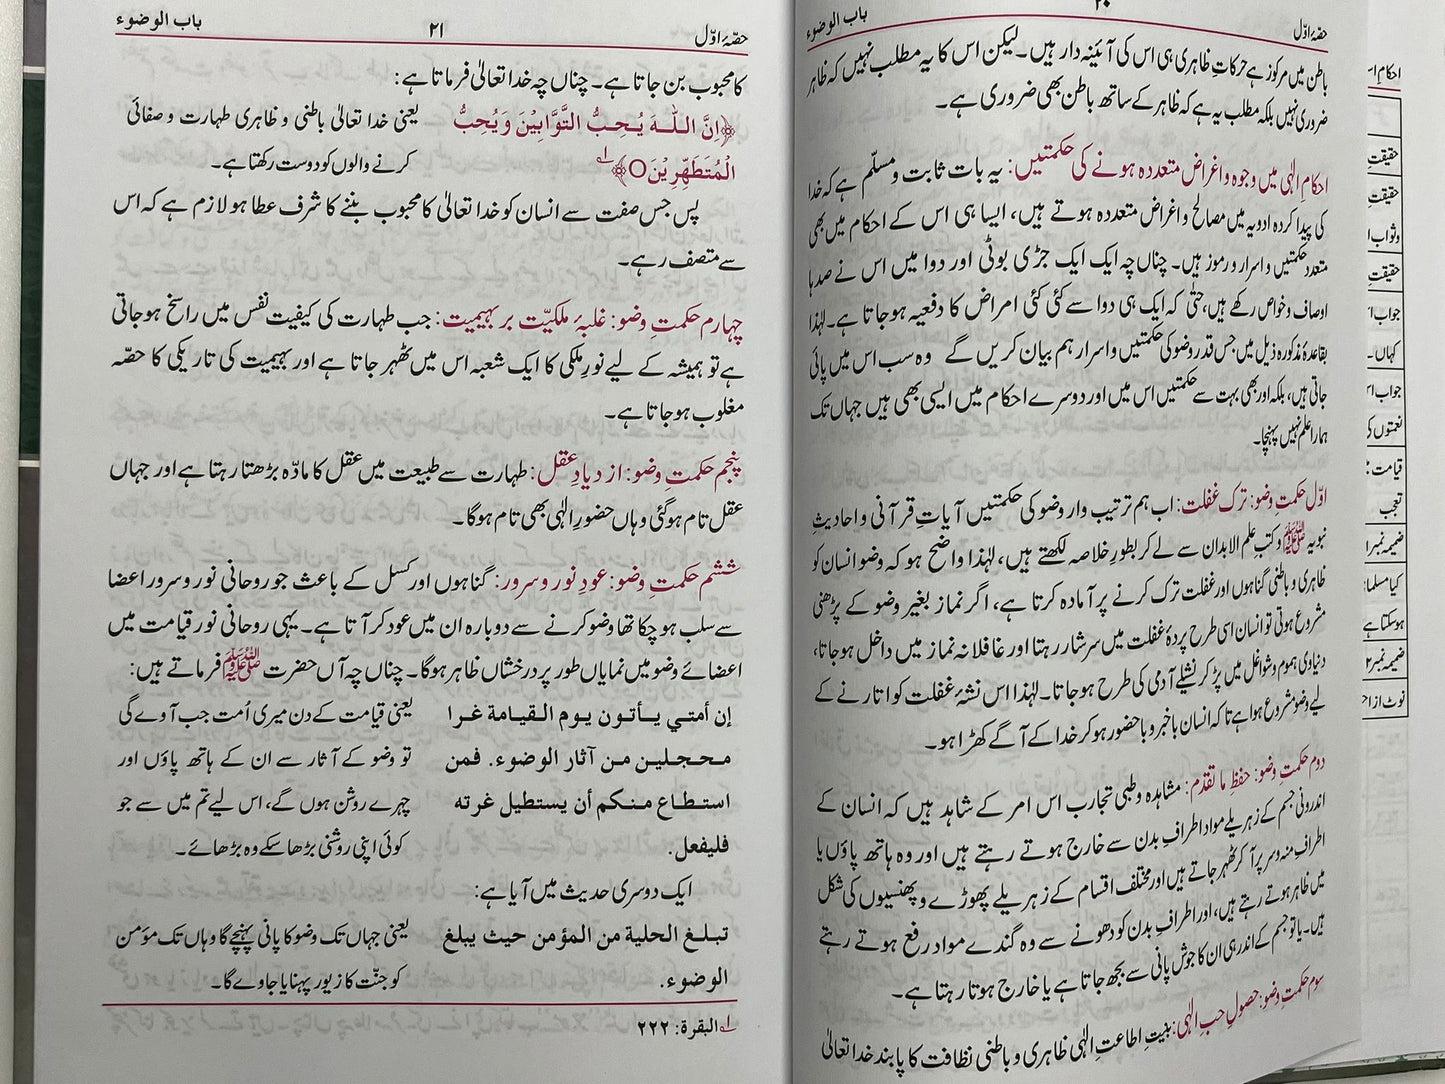 حصّۂ اوّل ۲۰ باب الوضوء
باطن میں مرکوز ہے حرکاتِ ظاہری ہی اس کی آئینہ دار ہیں۔ لیکن اس کا یہ مطلب نہیں کہ ظاہر
ضروری نہیں بلکہ مطلب یہ ہے کہ ظاہر کے ساتھ باطن بھی ضروری ہے۔
احکامِ الٰہی میں وجوہ و اغراض متعددہ ہونے کی حکمتیں: یہ بات ثابت و مسلّم ہے کہ خدا
کی پیدا کردہ ادویہ میں مصالح و اغراض متعددہ ہوتے ہیں، ایسا ہی اس کے احکام میں بھی
متعدد حکمتیں و اسرار و رموز ہیں۔ چناں چہ ایک ایک جڑی بوٹی اور دوا میں اس نے صدہا
اوصاف و خواص رکھے ہیں، حتّٰی کہ ایک ہی دوا سے کئی کئی امراض کا دفعیہ ہوجاتا ہے۔ لہٰذا
بقاعدۂ مذکورہ ذیل میں جس قدر وضو کی حکمتیں و اسرار ہم بیان کریں گے وہ سب اس میں پائی
جاتی ہیں، بلکہ اور بھی بہت سے حکمتیں اس میں اور دوسرے احکام میں ایسی بھی ہیں جہاں تک
ہمارا علم نہیں پہنچا۔
اوّل حکمتِ وضو: ترک غفلت: اب ہم ترتیب وار وضو کی حکمتیں آیاتِ قرآنی و احادیثِ
نبویہ ﷺ و کتب علم الابدان سے لے کر بطورِ خلاصہ لکھتے ہیں، لہٰذا واضح ہو کہ وضو انسان کو
ظاہری و باطنی گناہوں اور غفلت ترک کرنے پر آمادہ کرتا ہے، اگر نماز بغیر وضو کے پڑھنی
مشروع ہوتی تو انسان اسی طرح پردۂ غفلت میں سرشار رہتا اور غافلانہ نماز میں داخل ہوجاتا،
دنیاوی ہموم و شواغل میں پڑ کر نشیلے آدمی کی طرح ہوجاتا۔ لہٰذا اس نشۂ غفلت کو اتارنے کے
لیے وضو مشروع ہوا ہے تاکہ انسان باخبر و باحضور ہو کر خدا کے آگے کھڑا ہو۔
دوم حکمتِ وضو: حفظِ ما تقدم: مشاہدہ و طبی تجارب اس امر کے شاہد ہیں کہ انسان کے
اندرونی جسم کے زہریلے مواد اطرافِ بدن سے خارج ہوتے رہتے ہیں اور وہ ہاتھ پاؤں یا
اطراف منہ و سر پر آ کر ٹھہر جاتے ہیں اور مختلف اقسام کے زہریلے پھوڑے و پھنسیوں کی شکل
میں ظاہر ہوتے رہتے ہیں، اور اطرافِ بدن کو دھونے سے وہ گندے مواد رفع ہوتے رہتے
ہیں۔ یا تو جسم کے اندر ہی ان کا جوش پانی سے بجھ جاتا ہے یا خارج ہوتا رہتا ہے۔
سوم حکمتِ وضو: حصولِ حبِ الٰہی: بنیتِ اطاعتِ الٰہی ظاہری و باطنی نظافت کا پابند خدا تعالیٰ
حصّۂ اوّل ۲۱ باب الوضوء
کا محبوب بن جاتا ہے۔ چناں چہ خدا تعالیٰ فرماتا ہے:
﴿اِنَّ اللّٰهَ یُحِبُّ التَّوَّابِیْنَ وَیُحِبُّ یعنی خدا تعالیٰ باطنی و ظاہری طہارت و صفائی
الْمُتَطَهِّرِیْنَ○﴾ؔ۱ کرنے والوں کو دوست رکھتا ہے۔
پس جس صفت سے انسان کو خدا تعالیٰ کا محبوب بننے کا شرف عطا ہو لازم ہے کہ اس
سے متصف رہے۔
چہارم حکمتِ وضو: غلبۂ ملکیّت بر بہیمیت: جب طہارت کی کیفیت نفس میں راسخ ہوجاتی
ہے تو ہمیشہ کے لیے نورِ ملکی کا ایک شعبہ اس میں ٹھہر جاتا ہے اور بہیمیت کی تاریکی کا حصّہ
مغلوب ہوجاتا ہے۔
پنجم حکمتِ وضو: ازدیادِ عقل: طہارت سے طبیعت میں عقل کا مادّہ بڑھتا رہتا ہے اور جہاں
عقل تام ہوگئی وہاں حضورِ الٰہی بھی تام ہوگا۔
ششم حکمتِ وضو: عودِ نور و سرور: گناہوں اور کسل کے باعث جو روحانی نور و سرور اعضا
سے سلب ہو چکا تھا وضو کرنے سے دوبارہ ان میں عود کر آتا ہے۔ یہی روحانی نور قیامت میں
اعضائے وضو میں نمایاں طور پر درخشاں ظاہر ہوگا۔ چناں چہ آں حضرت ﷺ فرماتے ہیں:
إن أمتي يأتون يوم القيامة غرا یعنی قیامت کے دن میری اُمت جب آوے گی
محجلين من آثار الوضوء. فمن تو وضو کے آثار سے ان کے ہاتھ پاؤں اور
استطاع منكم أن يستطيل غرته چہرے روشن ہوں گے، اس لیے تم میں سے جو
فليفعل. کوئی اپنی روشنی بڑھا سکے وہ بڑھائے۔
ایک دوسری حدیث میں آیا ہے:
تبلغ الحلية من المؤمن حيث يبلغ یعنی جہاں تک وضو کا پانی پہنچے گا وہاں تک مؤمن
الوضوء. کو جنّت کا زیور پہنایا جاوے گا۔
ؔ۱ البقرة: ۲۲۲
احکام
حقیقت
حقیقت
وثواب
حقیقت
جواب
کہاں۔
جواب
نعمتوں کی
قیامت
تعجب
ضمیمہ نمبر ۱
کیا مسلما
ہوسکتا ہے
ضمیمہ نمبر ۲
نوٹ از